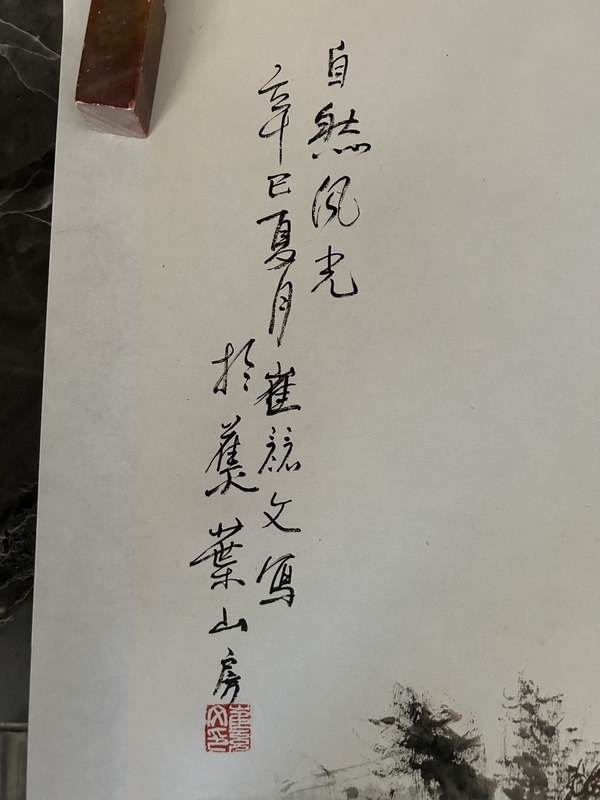 自然风光
辛巳夏月崔文写
於蕉葉山房